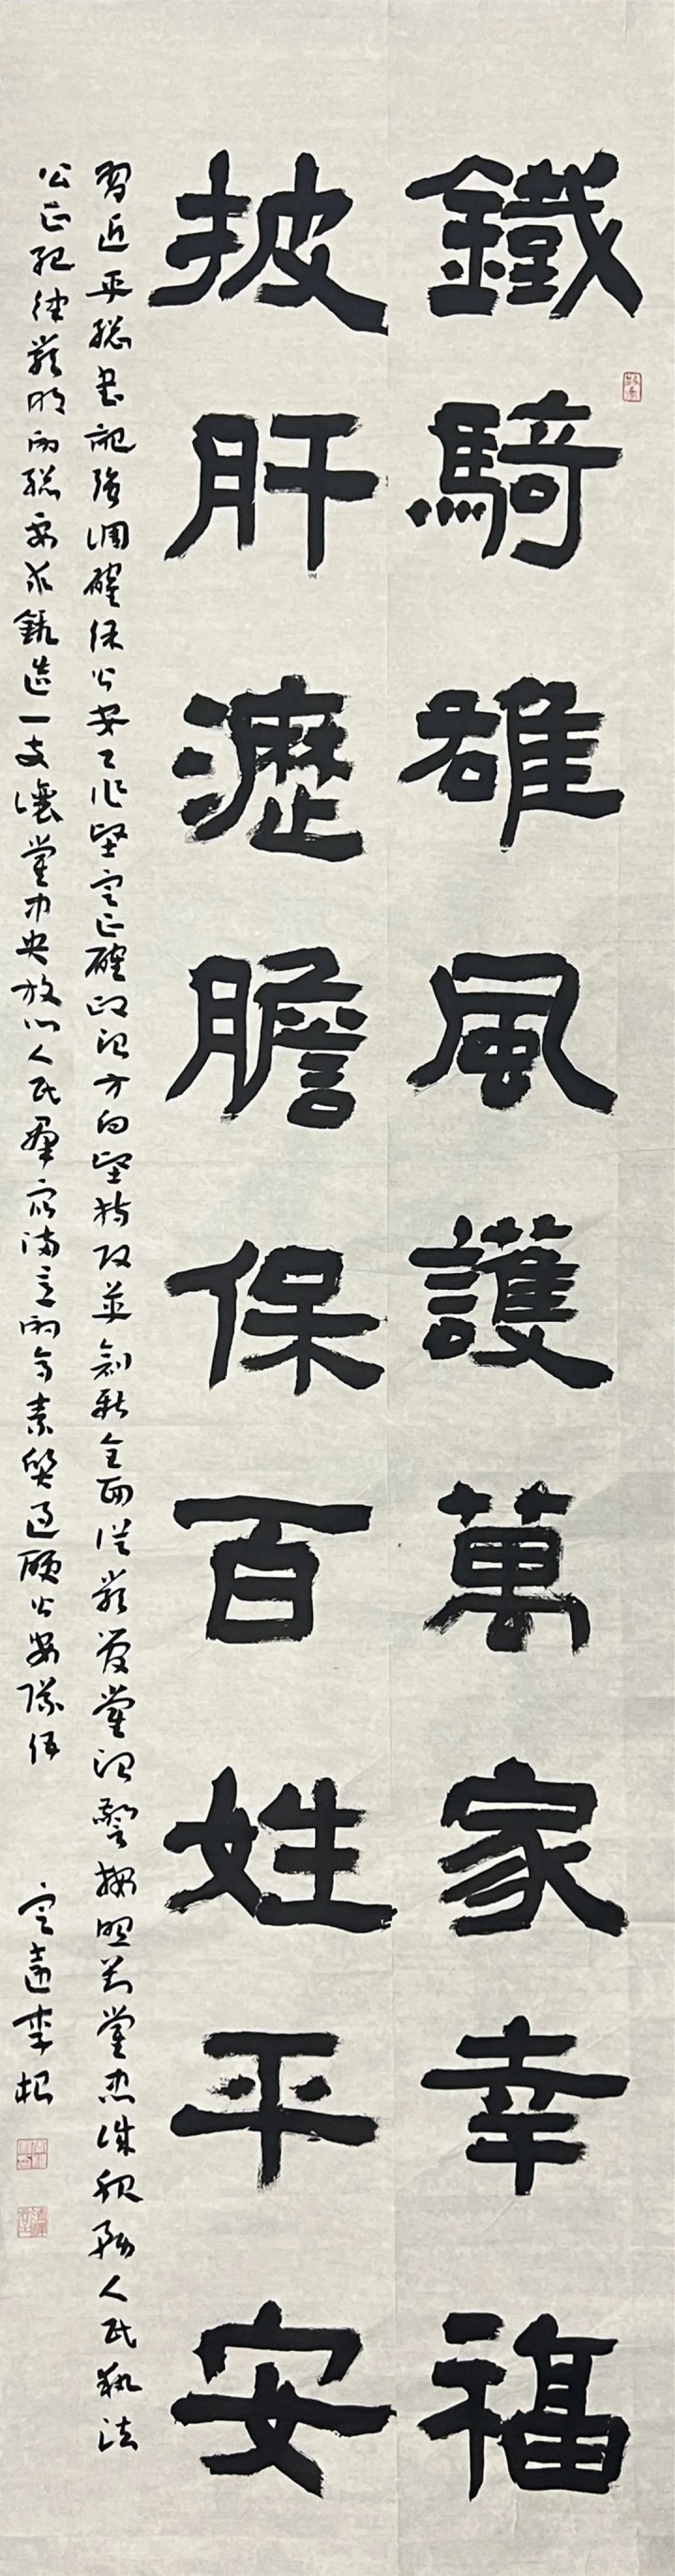 鐵騎雄風護萬家幸福
披肝瀝膽保百姓平安
習近平總書記强調確保公安工作堅定正確政治方向堅持改革創新全面從嚴管黨治警按照對黨忠誠服務人民執法
公正紀律嚴明的總要求鍛造一支讓黨中央放心人民群衆滿意的高素質過硬公安隊伍
定遠李松